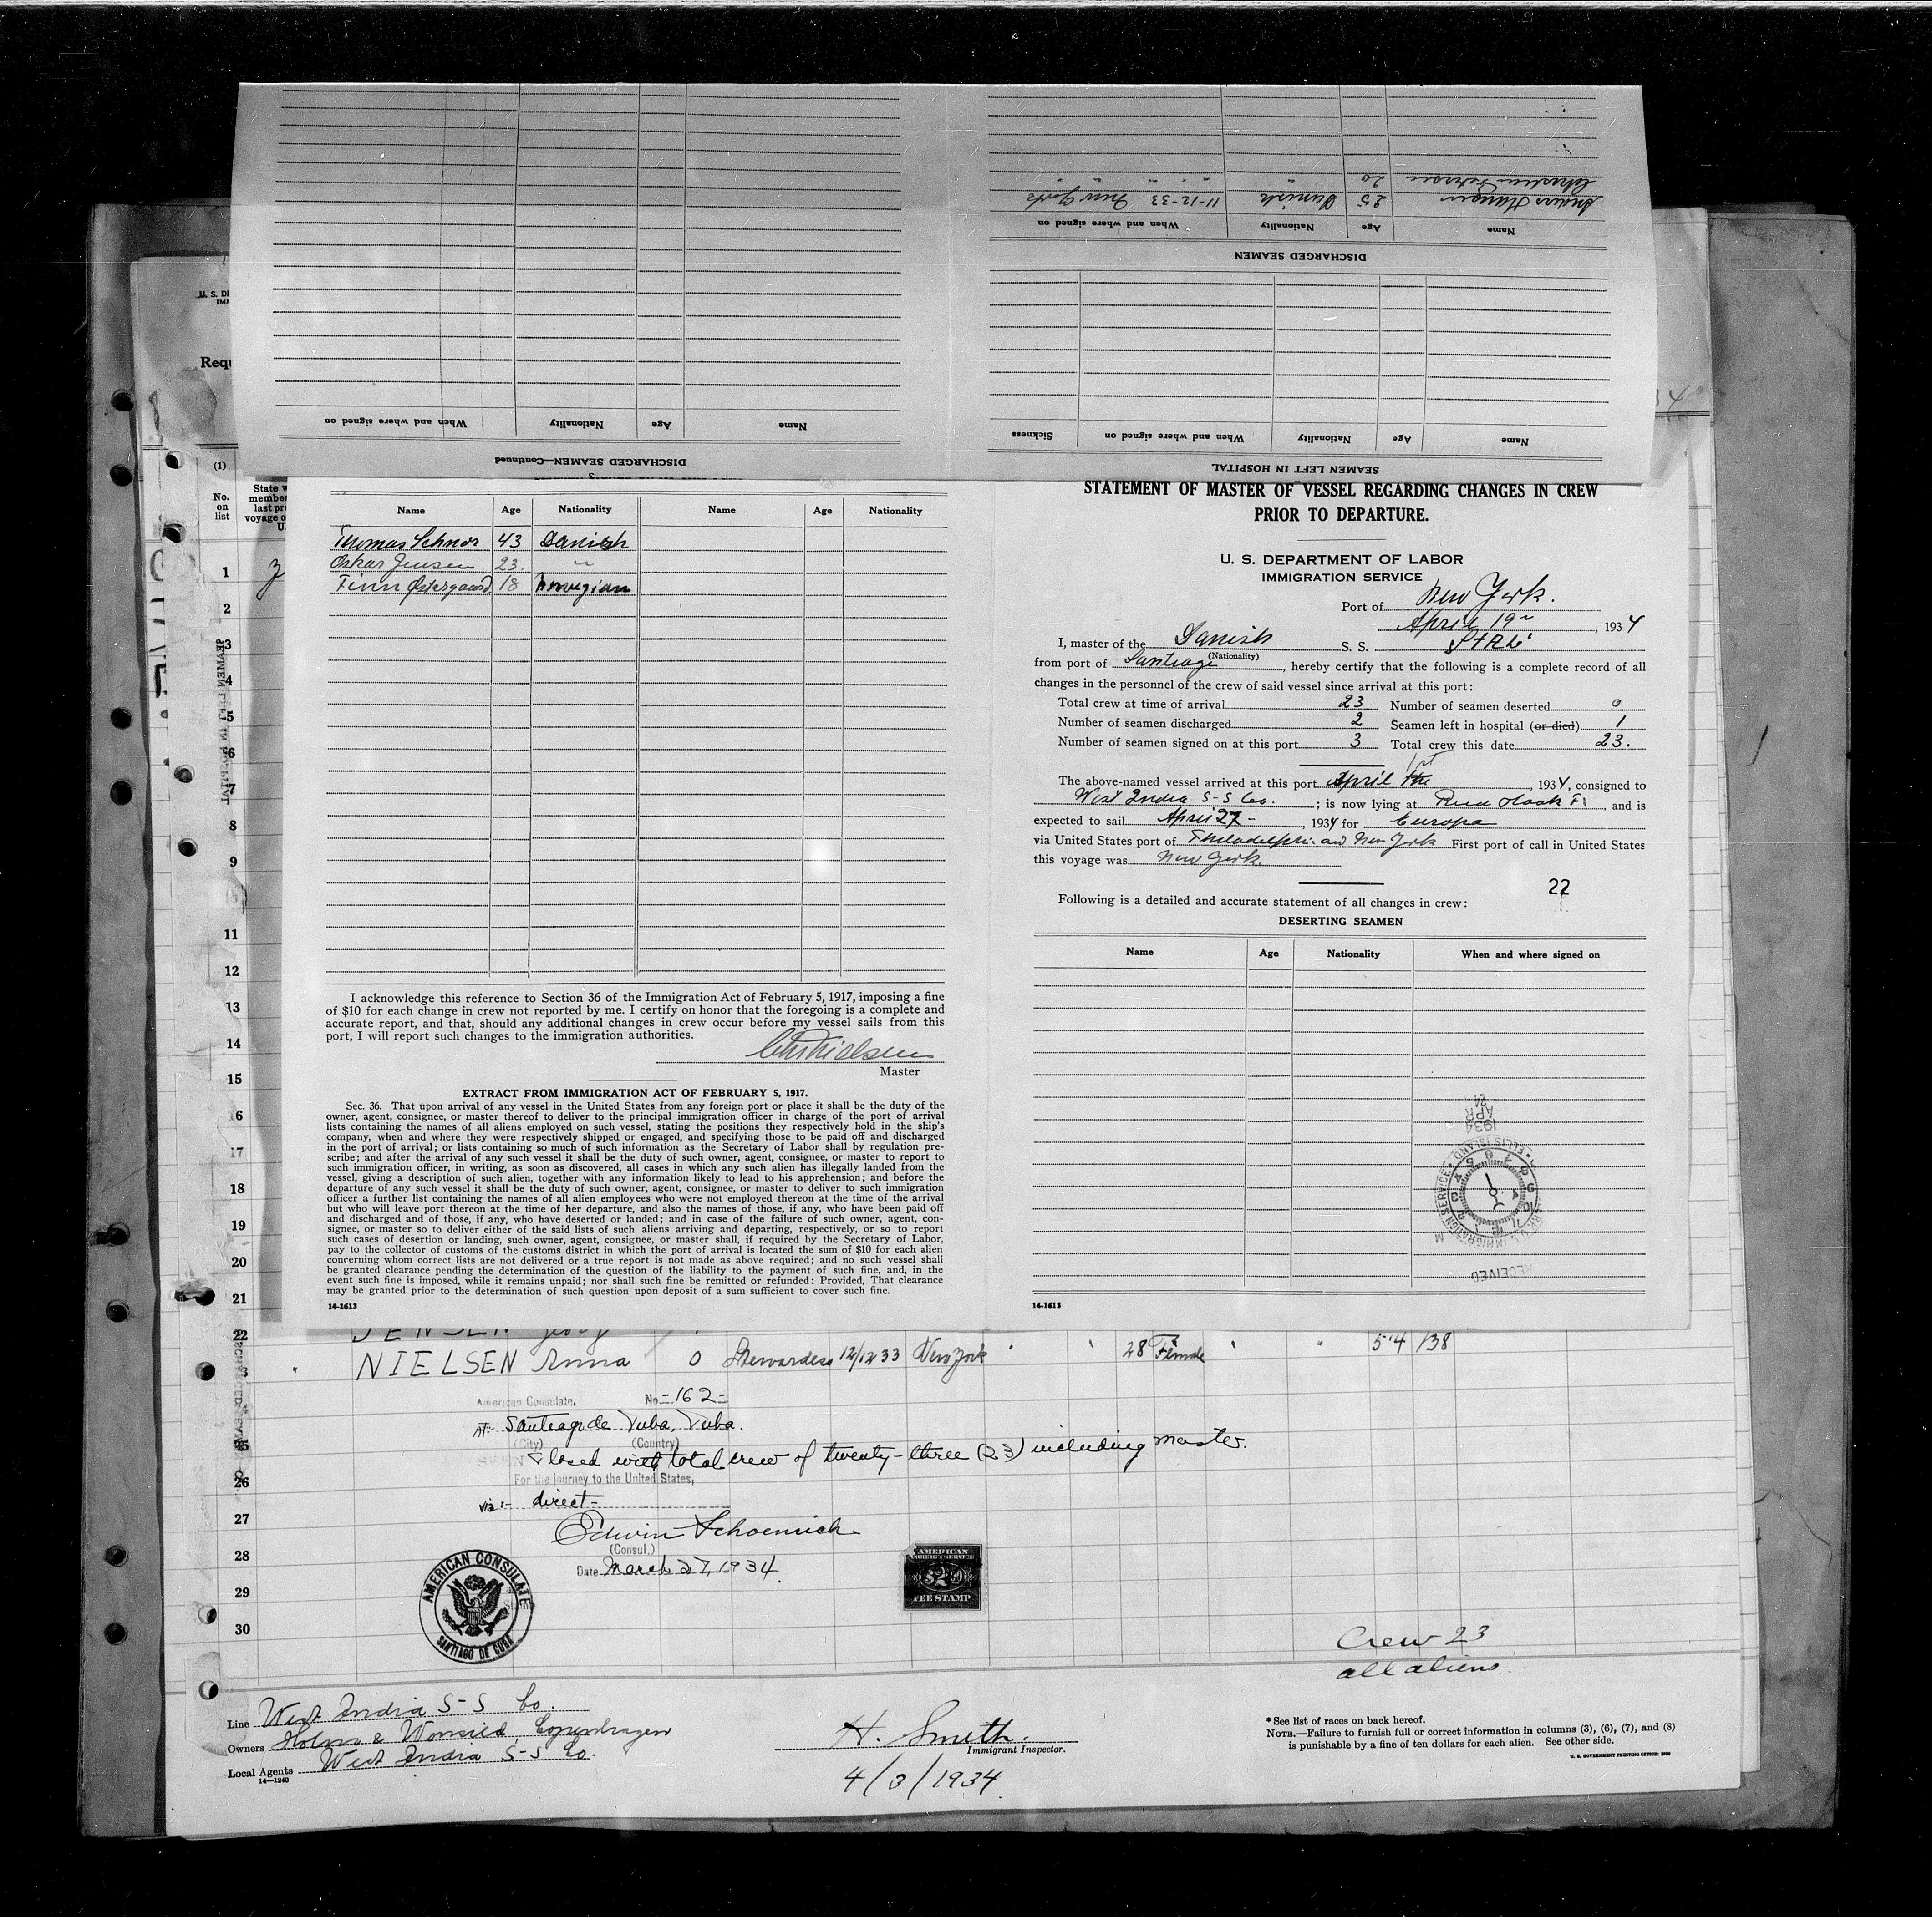 Name Age Nationality When and where signed on
DISCHARGED SEAMEN—Continued
SEAMEN LEFT IN HOSPITAL
Name Age Nationality When and where signed on Sickness
DISCHARGED SEAMEN
Name Age Nationality When and where signed on
Anders Hansen 25 Danish 11-12-33 New York
Petersen 20 " " "
U. S. DE
IMM
Requ
(1)
No. on list
State w
member
last pre
voyage o
U.
Name Age Nationality Name Age Nationality
Thomas Schnor 43 Danish
Oskar Jensen 23. "
Finn Østergaard 18 Norwegian
I acknowledge this reference to Section 36 of the Immigration Act of February 5, 1917, imposing a fine
of $10 for each change in crew not reported by me. I certify on honor that the foregoing is a complete and
accurate report, and that, should any additional changes in crew occur before my vessel sails from this
port, I will report such changes to the immigration authorities.
Nielsen
Master
EXTRACT FROM IMMIGRATION ACT OF FEBRUARY 5, 1917.
Sec. 36. That upon arrival of any vessel in the United States from any foreign port or place it shall be the duty of the
owner, agent, consignee, or master thereof to deliver to the principal immigration officer in charge of the port of arrival
lists containing the names of all aliens employed on such vessel, stating the positions they respectively hold in the ship's
company, when and where they were respectively shipped or engaged, and specifying those to be paid off and discharged
in the port of arrival; or lists containing so much of such information as the Secretary of Labor shall by regulation pre-
scribe; and after the arrival of any such vessel it shall be the duty of such owner, agent, consignee, or master to report to
such immigration officer, in writing, as soon as discovered, all cases in which any such alien has illegally landed from the
vessel, giving a description of such alien, together with any information likely to lead to his apprehension; and before the
departure of any such vessel it shall be the duty of such owner, agent, consignee, or master to deliver to such immigration
officer a further list containing the names of all alien employees who were not employed thereon at the time of the arrival
but who will leave port thereon at the time of her departure, and also the names of those, if any, who have been paid off
and discharged and of those, if any, who have deserted or landed; and in case of the failure of such owner, agent, con-
signee, or master so to deliver either of the said lists of such aliens arriving and departing, respectively, or so to report
such cases of desertion or landing, such owner, agent, consignee, or master shall, if required by the Secretary of Labor,
pay to the collector of customs of the customs district in which the port of arrival is located the sum of $10 for each alien
concerning whom correct lists are not delivered or a true report is not made as above required; and no such vessel shall
be granted clearance pending the determination of the question of the liability to the payment of such fine, and, in the
event such fine is imposed, while it remains unpaid; nor shall such fine be remitted or refunded: Provided, That clearance
may be granted prior to the determination of such question upon deposit of a sum sufficient to cover such fine.
14-1613
STATEMENT OF MASTER OF VESSEL REGARDING CHANGES IN CREW
PRIOR TO DEPARTURE.
U. S. DEPARTMENT OF LABOR
IMMIGRATION SERVICE
Port of New York.
April 19, 1934
I, master of the Danish S. S.
(Nationality)
from port of Santiago, hereby certify that the following is a complete record of all
changes in the personnel of the crew of said vessel since arrival at this port:
Total crew at time of arrival 23 Number of seamen deserted 0
Number of seamen discharged 2 Seamen left in hospital (or died) 1
Number of seamen signed on at this port 3 Total crew this date 23.
The above-named vessel arrived at this port April 1st, 1934, consigned to
West India S-S Co. ; is now lying at Hook, and is
expected to sail April 27, 1934 for Europa
via United States port of and New York First port of call in United States
this voyage was New York.
22
Following is a detailed and accurate statement of all changes in crew:
DESERTING SEAMEN
Name Age Nationality When and where signed on
24
APR
1934
IMMIGRATION SERVICE · ELLIS ISLAND
RECEIVED
14-1613
1
2
3
4
5
6
7
8
9
11
12
13
14
15
16
17
18
19
20
21
22
JENSEN
NIELSEN Anna 0 Stewardess 12/12 33 New York " " 28 Female " " 5'4 138
American Consulate, No - 162 -
At: Santiago de Cuba, Cuba.
(City) (Country)
25
SEEN Closed with total crew of twenty-three (23) including master.
26
For the journey to the United States,
via :- direct -
27
Edwin Schoenrich
(Consul.)
28
Date March 27, 1934.
29
30
AMERICAN CONSULATE
SANTIAGO DE CUBA
AMERICAN
FOREIGN SERVICE
$2.00
FEE STAMP
Crew 23
all aliens
Line West India S-S Co.
Owners Holm & Wonsild, Copenhagen
Local Agents West India S-S Co.
14—1240
H. Smith.
Immigrant Inspector.
4/3/1934
* See list of races on back hereof.
NOTE.—Failure to furnish full or correct information in columns (3), (6), (7), and (8)
is punishable by a fine of ten dollars for each alien. See other side.
U. S. GOVERNMENT PRINTING OFFICE